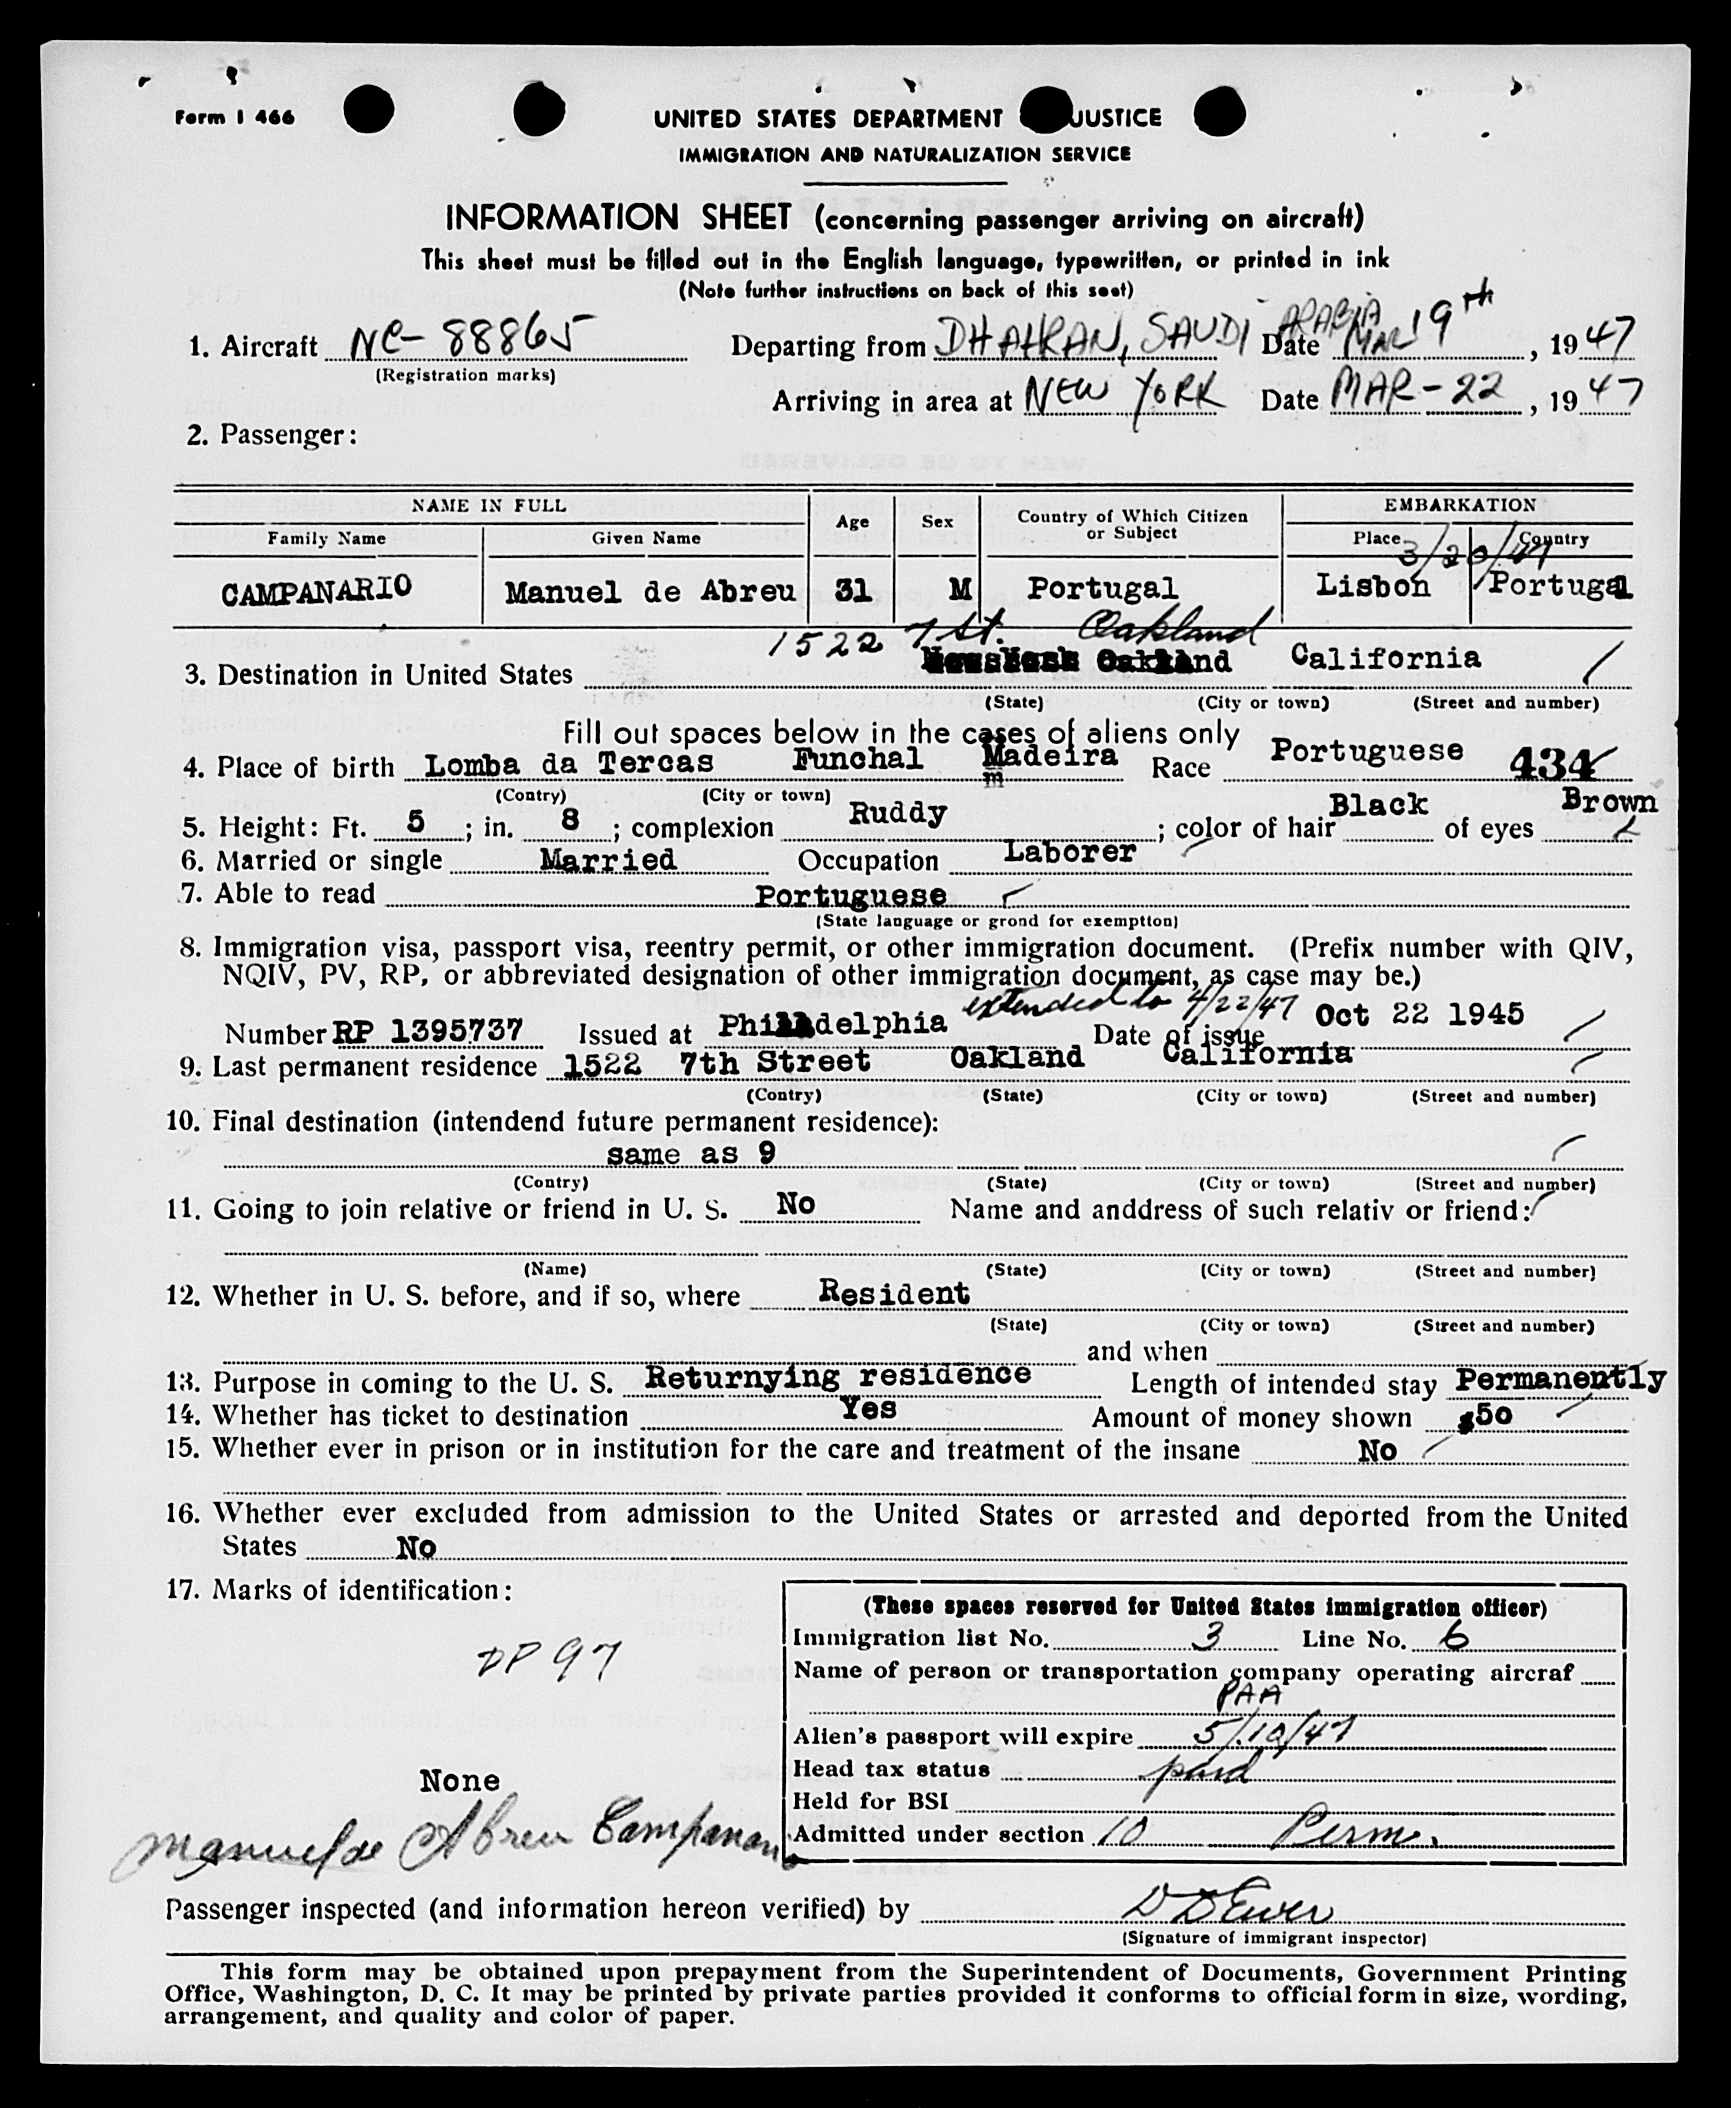 Form I 466
UNITED STATES DEPARTMENT JUSTICE
IMMIGRATION AND NATURALIZATION SERVICE
INFORMATION SHEET (concerning passenger arriving on aircraft)
This sheet must be filled out in the English language, typewritten, or printed in ink
(Note further instructions on back of this seet)
1. Aircraft NC-88865 Departing from DHAHRAN, SAUDI ARABIA Date MAR 19th, 1947
(Registration marks)
Arriving in area at NEW YORK Date MAR-22, 1947
2. Passenger:
NAME IN FULL Age Sex Country of Which Citizen or Subject EMBARKATION
Family Name Given Name Place Country
3/20/47
CAMPANARIO Manuel de Abreu 31 M Portugal Lisbon Portugal
1522 7 St. Oakland
3. Destination in United States Oakland California
(State) (City or town) (Street and number)
Fill out spaces below in the cases of aliens only
4. Place of birth Lomba da Tercas Funchal Madeira Race Portuguese 434
(Contry) (City or town)
5. Height: Ft. 5; in. 8; complexion Ruddy; color of hair Black of eyes Brown
6. Married or single Married Occupation Laborer
7. Able to read Portuguese
(State language or grond for exemption)
8. Immigration visa, passport visa, reentry permit, or other immigration document. (Prefix number with QIV,
NQIV, PV, RP, or abbreviated designation of other immigration document, as case may be.)
extended to 4/22/47
Number RP 1395737 Issued at Philadelphia Date of issue Oct 22 1945
9. Last permanent residence 1522 7th Street Oakland California
(Contry) (State) (City or town) (Street and number)
10. Final destination (intendend future permanent residence):
same as 9
(Contry) (State) (City or town) (Street and number)
11. Going to join relative or friend in U. S. No Name and anddress of such relativ or friend:
(Name) (State) (City or town) (Street and number)
12. Whether in U. S. before, and if so, where Resident
(State) (City or town) (Street and number)
and when
13. Purpose in coming to the U. S. Returnying residence Length of intended stay Permanently
14. Whether has ticket to destination Yes Amount of money shown $50
15. Whether ever in prison or in institution for the care and treatment of the insane No
16. Whether ever excluded from admission to the United States or arrested and deported from the United
States No
17. Marks of identification:
DP 97
None
Manuel de Abreu Campanario
(These spaces reserved for United States immigration officer)
Immigration list No. 3 Line No. 6
Name of person or transportation company operating aircraf
PAA
Alien's passport will expire 5/10/47
Head tax status paid
Held for BSI
Admitted under section 10 Perm.
Passenger inspected (and information hereon verified) by D D Ewer
(Signature of immigrant inspector)
This form may be obtained upon prepayment from the Superintendent of Documents, Government Printing
Office, Washington, D. C. It may be printed by private parties provided it conforms to official form in size, wording,
arrangement, and quality and color of paper.